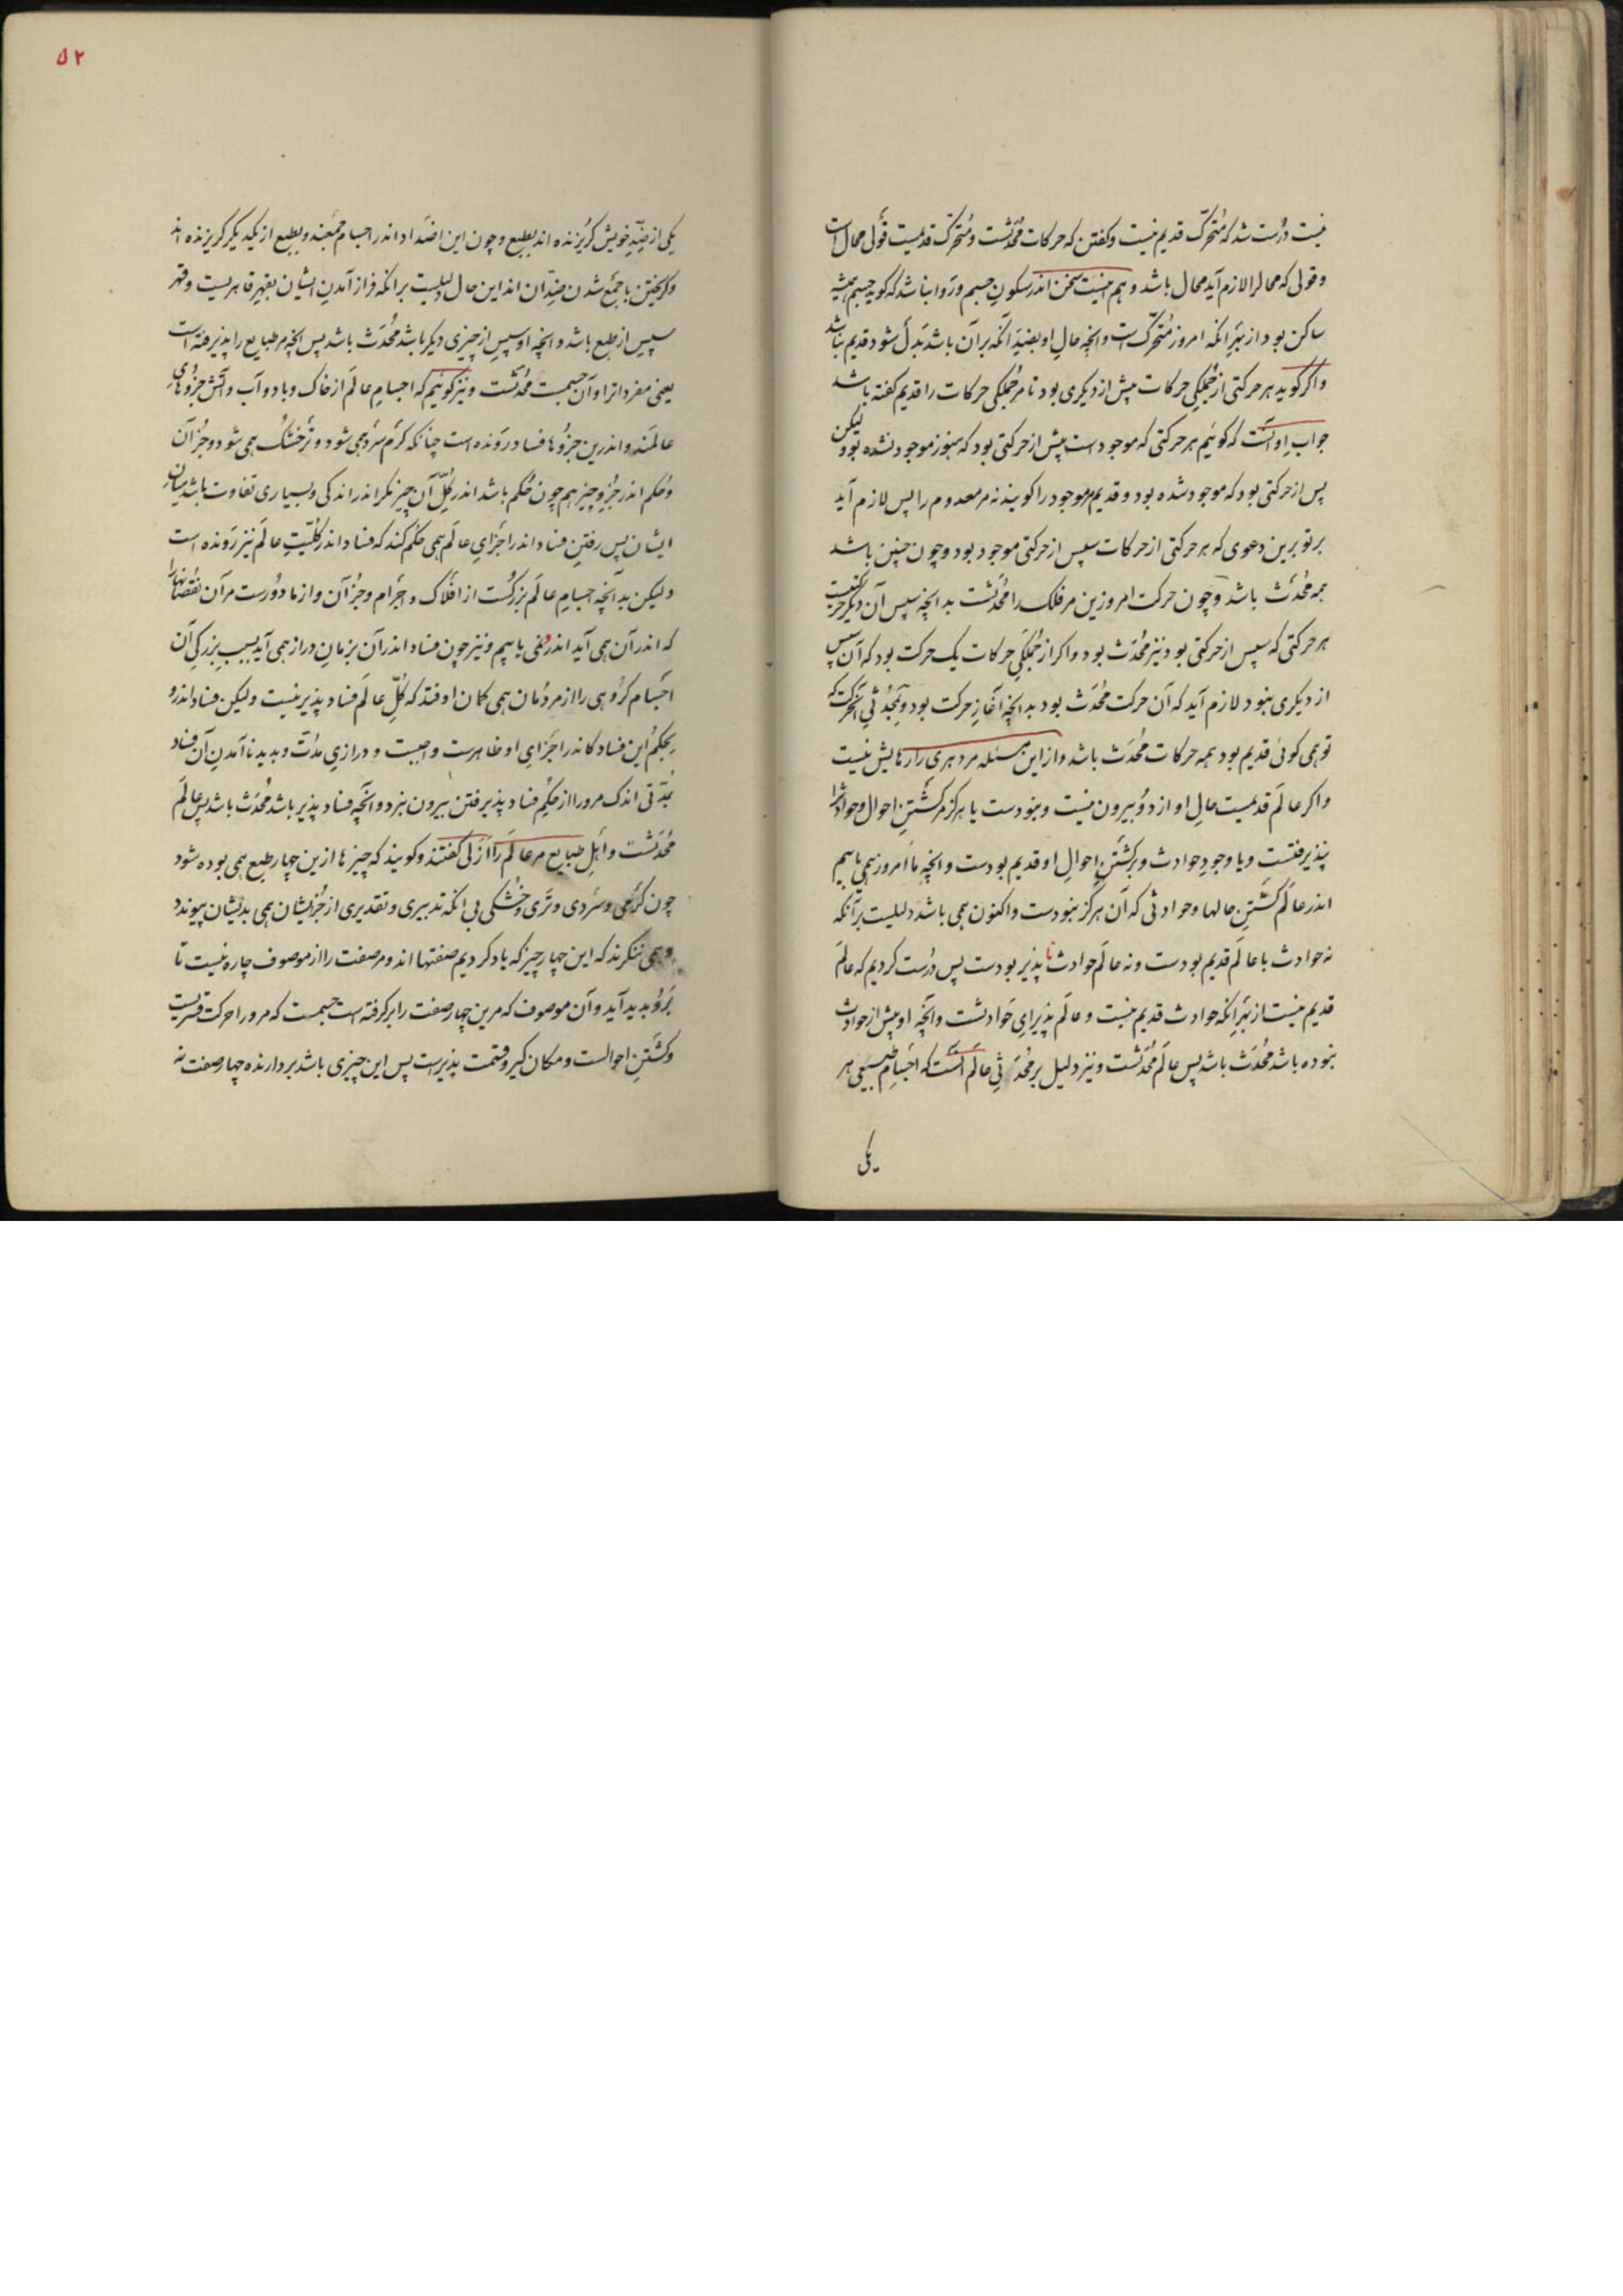 نیست درُست شد که مُتحرّک قدیم نیست و کفتن که حرکات مُحدَثست و مُتحرّک قدیمست قَولی محال است
و قولی که محال را لازم آید محال باشد و هم اینست سخن اندر سکونِ جسم و رَوا نباشد که کوید جسم همیشه
ساکن بود از بهرِ انکه امروز مُتحرّک است و انچه حالِ او بضدِّ آنکه بر آن باشد بَدَل شود قدیم نباشد
و اکر کوید هر حرکتی از جُملکیِ حرکات پیش از دیکری بود تا مر جُملکی حرکات را قدیم کفته باشد
جوابِ او آنست که کوئیم هر حرکتی که موجود است پیش از حرکتی بود که هنوز موجود نشده بود و لیکن
پس از حرکتی بود که موجود شده بود و قدیم مر موجود را کویند نه مر معدوم را پس لازم آید
بر تو برین دعوی که هر حرکتی از حرکات سپس از حرکتی موجود بود و چون چنین باشد
همه مُحدَث باشد و چون حرکت امروزین مر فلک را مُحدَثست بدانچه سپسِ آن دیکر حرکتیست
هر حرکتی که سپس از حرکتی بود نیز مُحدَث بود و اکر از جُملکیِ حرکات یک حرکت بود که آن سپس
از دیکری نبود لازم آید که آن حرکت مُحدَث بود بدانچه آغازِ حرکت بود و بمُحدَثیِ آن حرکت که
تو همی کوئی قدیم بود همه حرکات مُحدَث باشد و از این مسئله مر دهری را رهایش نیست
و اکر عالَم قدیمست حالِ او از دو بیرون نیست و نبودست یا هرکز مر کَشتنِ احوال و حوادث را
نپذیرفتست و یا وجودِ حوادث و برکَشتنِ احوالِ او قدیم بودست و انچه ما امروز همی یابیم
اندر عالَم کَشتنِ حالها و حوادثی که آن هرکز نبودست و اکنون همی باشد دلیلست بر آنکه
نه حوادث با عالَم قدیم بودست و نه عالَم حوادث نا پذیر بودست پس درُست کردیم که عالَم
قدیم نیست از بهرِ انکه حوادث قدیم نیست و عالَم پذیرایِ حَوادثست و انچه او پیش از حوادث
نبوده باشد مُحدَث باشد پس عالَم مُحدَثست و نیز دلیل بر مُحدَثیِ عالَم آنست که اجسامِ طبیعی هر
یکی
۵۲
یکی از ضِدِّ خویش کریزنده اند بطبع و چون این اضداد اندر اجسام جمعند و بطبع از یکدیکر کریزنده اند
و کریختن با جمع شدن ضِدّان اند این حال دلیلست بر انکه فراز آمدنِ ایشان بقهرِ قاهریست و قهر
سپس از طبع باشد و انچه او سپس از چیزی دیکر باشد مُحدَث باشد پس انچه مر طبایع را پذیرفته است
یعنی مفردات را و آن جسمست مُحدَثست و نیز کوئیم که اجسامِ عالَم از خاک و باد و آب و آتش جزوهایِ
عالَمند و اندرین جزوها فساد رونده است چنانکه کرم سرد همی شود و تر خشک همی شود و جُز آن
و حُکم اندر جُزوِ چیز هم چون حُکم باشد اندر کُلِّ آن چیز مکر اندر اندکی و بسیاری تفاوت باشد میانِ
ایشان پس رفتنِ فساد اندر اجزایِ عالَم همی حُکم کند که فساد اندر کُلّیّتِ عالَم نیز رَونده است
و لیکن بدانچه اجسامِ عالَم بزرکست از افلاک و اجرام و جُز آن و از ما دورست مر آن نقصانها را
که اندر آن همی آید اندر نمی یابیم و نیز چون فساد اندر آن بزمانِ دراز همی آید بسببِ بزرکیِ آن
اجسام کروهی را از مردُمان همی کمان اوفتد که کُلِّ عالَم فساد پذیر نیست و لیکن فساد اندرو
بحکمِ این فساد کاندر اجزایِ او ظاهرست واجبست و درازیِ مدّت و پدید نا آمدنِ آن فساد
بمدّتی اندک مرو را از حکمِ فساد پذیرفتن بیرون نبرد و انچه فساد پذیر باشد مُحدَث باشد پس عالَم
مُحدَثست و اهلِ طبایع مر عالَم را ازلی کفتند و کویند که چیزها ازین چهار طبع همی بوده شود
چون کرمی و سَردی و تَری و خُشکی بی انکه تدبیری و تقدیری از جُز ایشان همی بدیشان پیوندد
و همی ننکرند که این چهار چیز که یاد کردیم صفتها اند و مر صفت را از موصوف چاره نیست تا
بَرو پدید آید و آن موصوف که مرین چهار صفت را برکرفته است جسمست که مرو را حرکت قسریست
و کَشتنِ احوالست و مکان کیر و قسمت پذیر است پس این چیزی باشد بردارنده چهار صفت نه